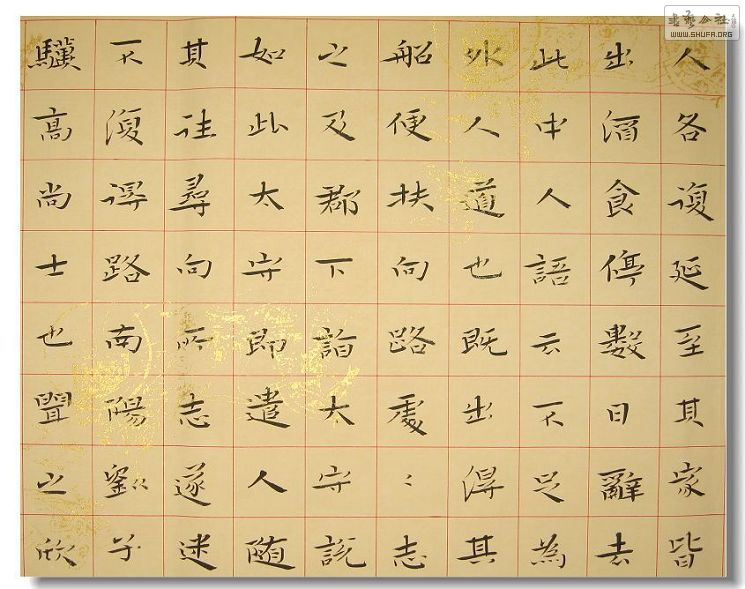 人各復延至其家皆
出酒食停數日辭去
此中人語云不足為
外人道也既出得其
船便扶向路處〻志
之及郡下詣太守說
如此太守即遣人随
其往尋向所志遂迷
不復得路南陽劉子
驥高尚士也聞之欣
書藝公社
WWW.SHUFA.ORG